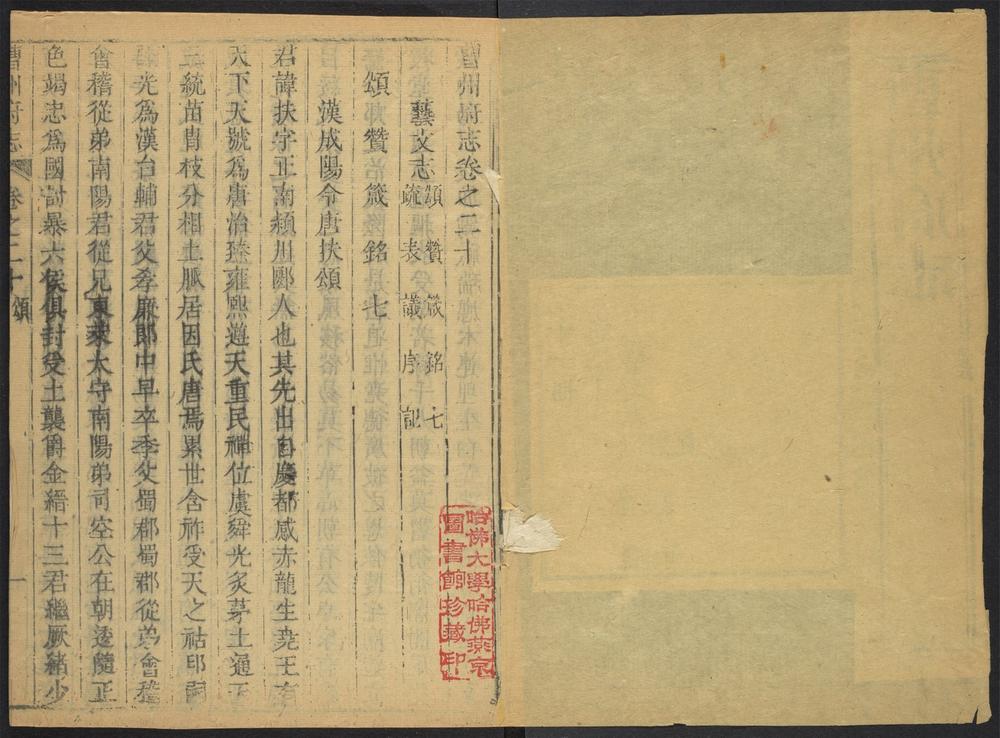 曹州府志卷之二十
藝文志 頌 贊 箴 銘 七
疏 表 議 序 記
頌贊箴銘七
漢成陽令唐扶頌
君諱扶字正南潁川郾人也其先出自慶都感赤龍生堯王有
天下大號為唐治致雍熙遵天重民禪位虞舜光炙茅土通天
三統苗胄枝分相土脈居因氏唐焉累世含祚受天之祜印
光為漢台輔君父孝廉郎中早卒季父蜀郡蜀郡從弟會稽
會稽從弟南陽君從兄東萊太守南陽弟司空公在朝逶隨正
色竭忠為國討暴六侯俱封受土襲爵金縉十三君繼厥緒少
曹州府志 卷之二十 頌 一
哈佛大學哈佛燕京
圖書館珍藏印